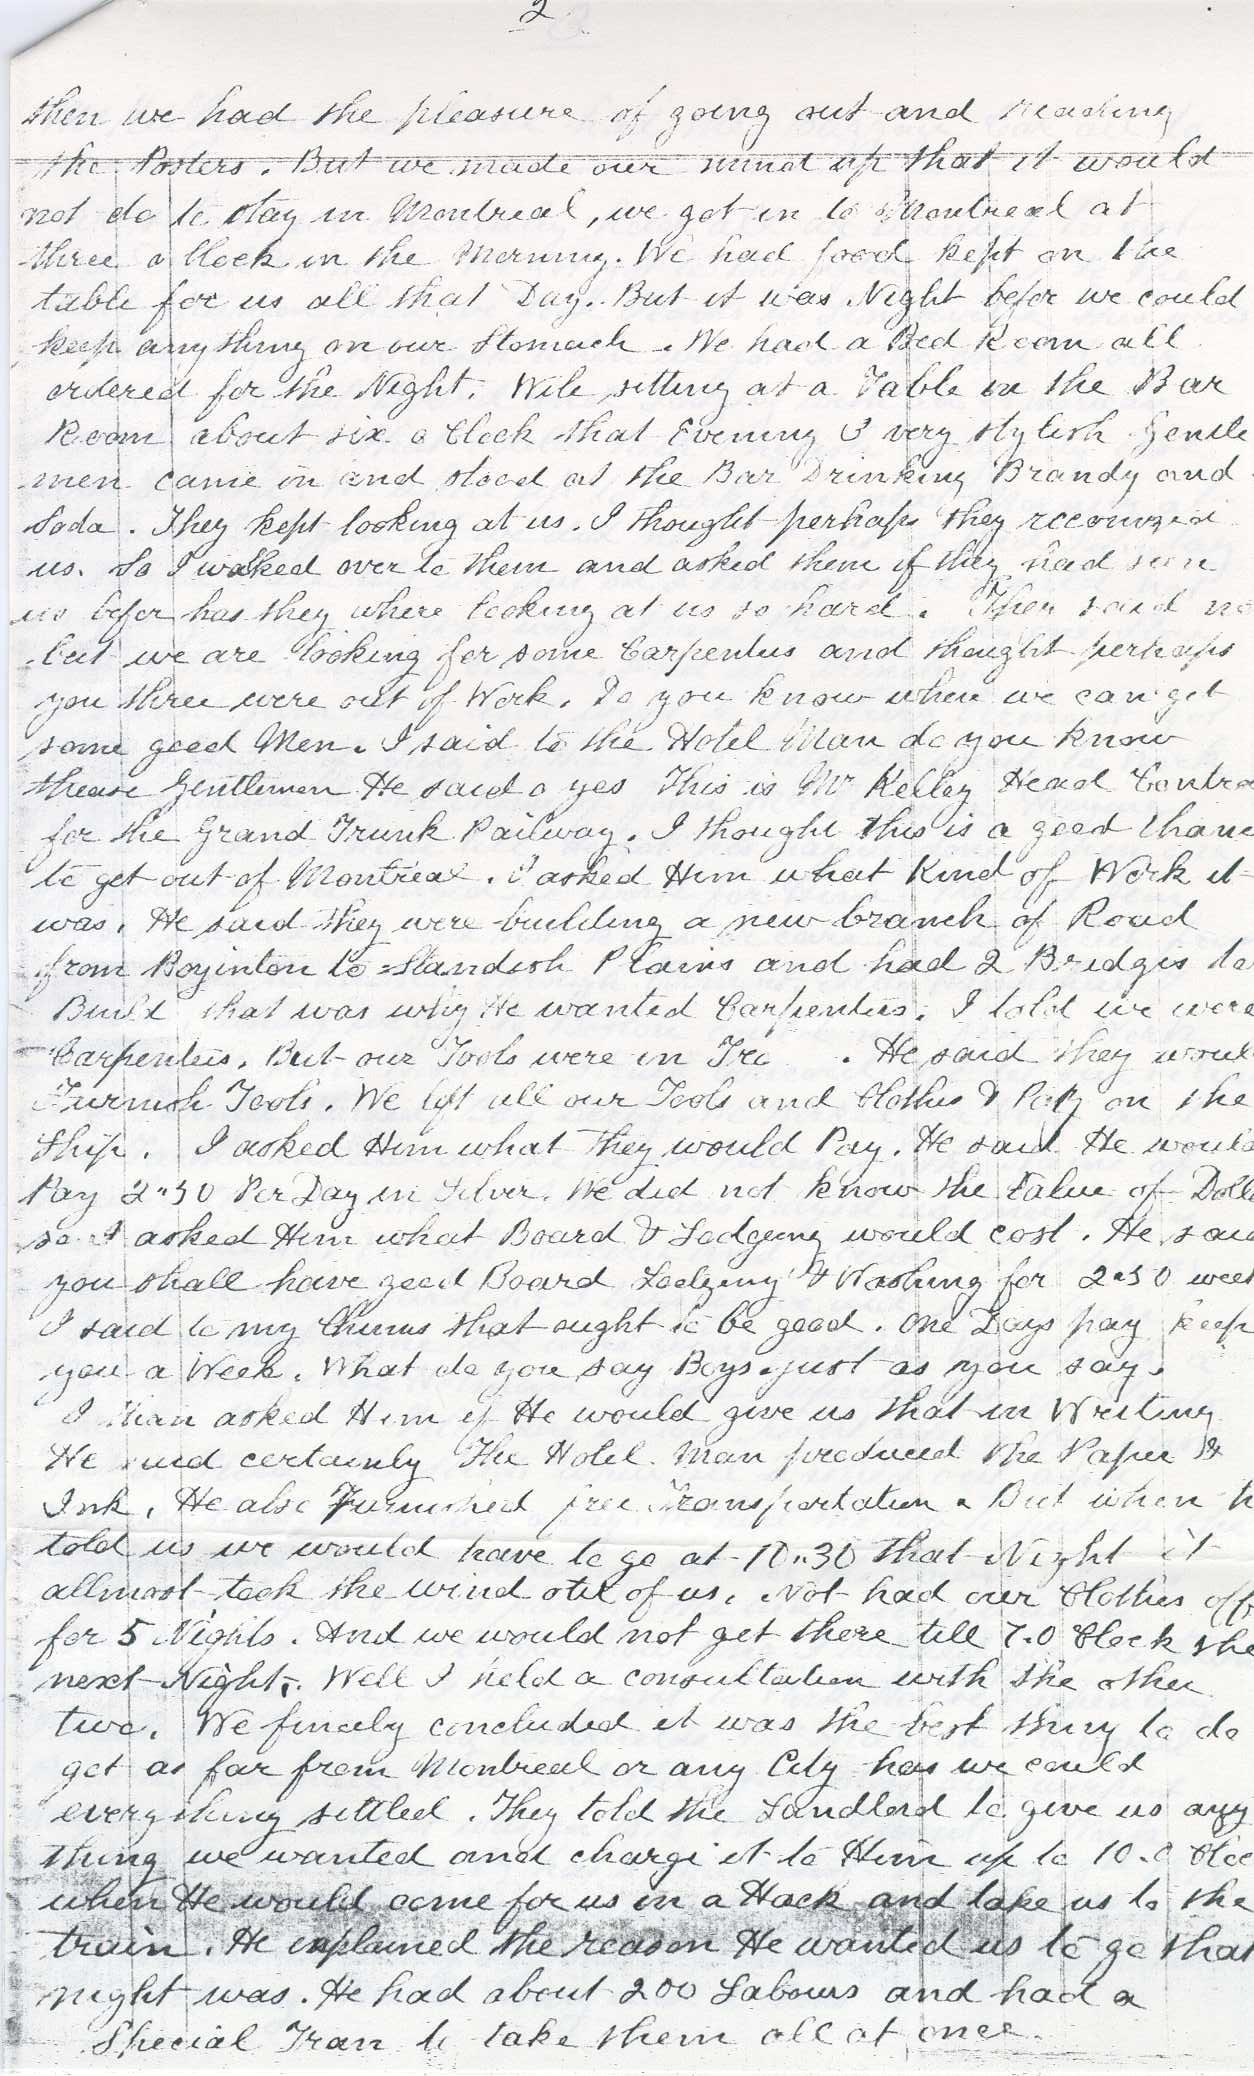 2
then we had the pleasure of going out and reading
the Posters. But we made our mind up that it would
not do to stay in Montreal, we got in to Montreal at
three o Clock in the Morning. We had food kept on the
table for us all that Day. But it was Night befor we could
keep any thing on our Stomach. We had a Bed Room all
ordered for the Night. Wile sitting at a Table in the Bar
Room about six o Clock that Evening 2 very stylish Gentle
men came in and stood at the Bar Drinking Brandy and
Soda. They kept looking at us. I thought perhaps they
us. So I walked over to them and asked them if they had seen
us befor has they where looking at us so hard. They said no
but we are looking for some Carpenters and thought perhaps
you three were out of Work. Do you know where we can get
some good Men. I said to the Hotel Man do you know
thease Gentlemen He said o yes This is Mr Kelley Head Contra
for the Grand Trunk Railway. I thought this is a good Chanc
to get out of Montreal. I asked Him what Kind of Work it
was. He said they were building a new branch of Road
from Boyinton to Standish Plains and had 2 Bridges to
Build that was why He wanted Carpenters. I told we were
Carpenters. But our Tools were in . He said they woul
Furnish Tools. We left all our Tools and Clothes & on the
Ship. I asked Him what they would Pay. He said He would
Pay 2"50 Per Day in Silver. We did not know the Value of Dolla
so I asked Him what Board & Lodgeing would cost. He said
you shall have good Board Lodging & Washing for 2"50 week
I said to my Chums that ought to be good. One Days pay keep
you a Week. What do you say Boys. just as you say.
I than asked Him if He would give us that in Writing
He said certainly The Hotel Man produced the Paper &
Ink. He also Furnished free Transportation. But when h
told us we would have to go at 10"30 that Night it
allmost took the wind out of us. Not had our Clothes off
for 5 Nights. And we would not get there till 7.0 Clock the
next Night. Well I held a consultation with the other
two. We finely concluded it was the best thing to do
get as far from Montreal or any City has we could
every thing settled. They told the Landlord to give us any
thing we wanted and charge it to Him up to 10.0 Cloc
when He would come for us in a Hack and take us to the
train. He explained the reason He wanted us to go that
night was. He had about 200 Labours and had a
Special Tran to take them all at once.